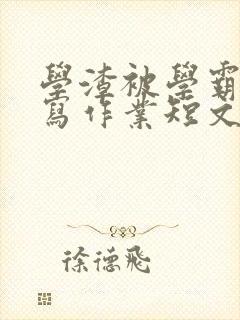 學渣被學霸
寫作業短文
徐德飛